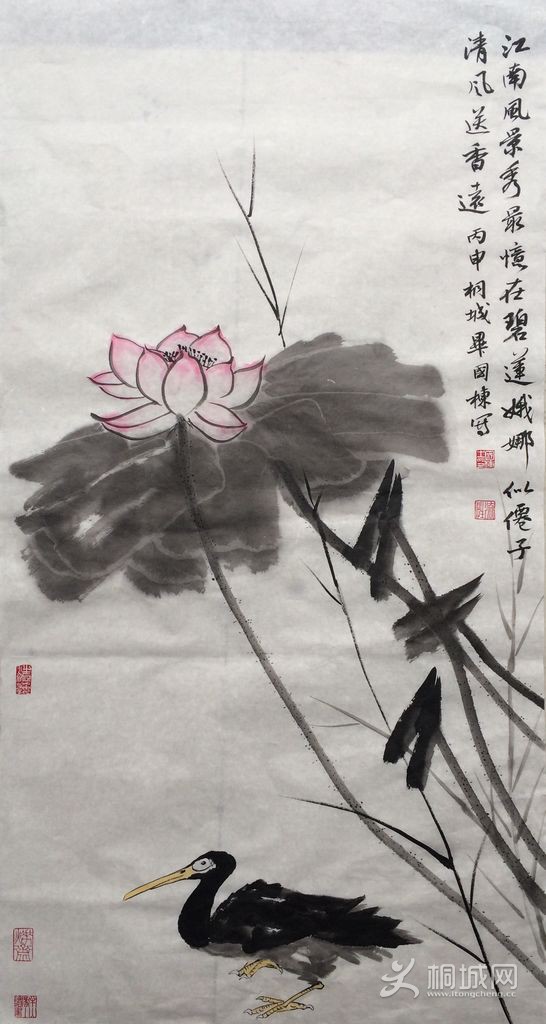 江南風景秀最憶在碧蓮娥娜似僊子
清风送香遠丙申桐城畢国棟写
桐城网
www.itongcheng.cc